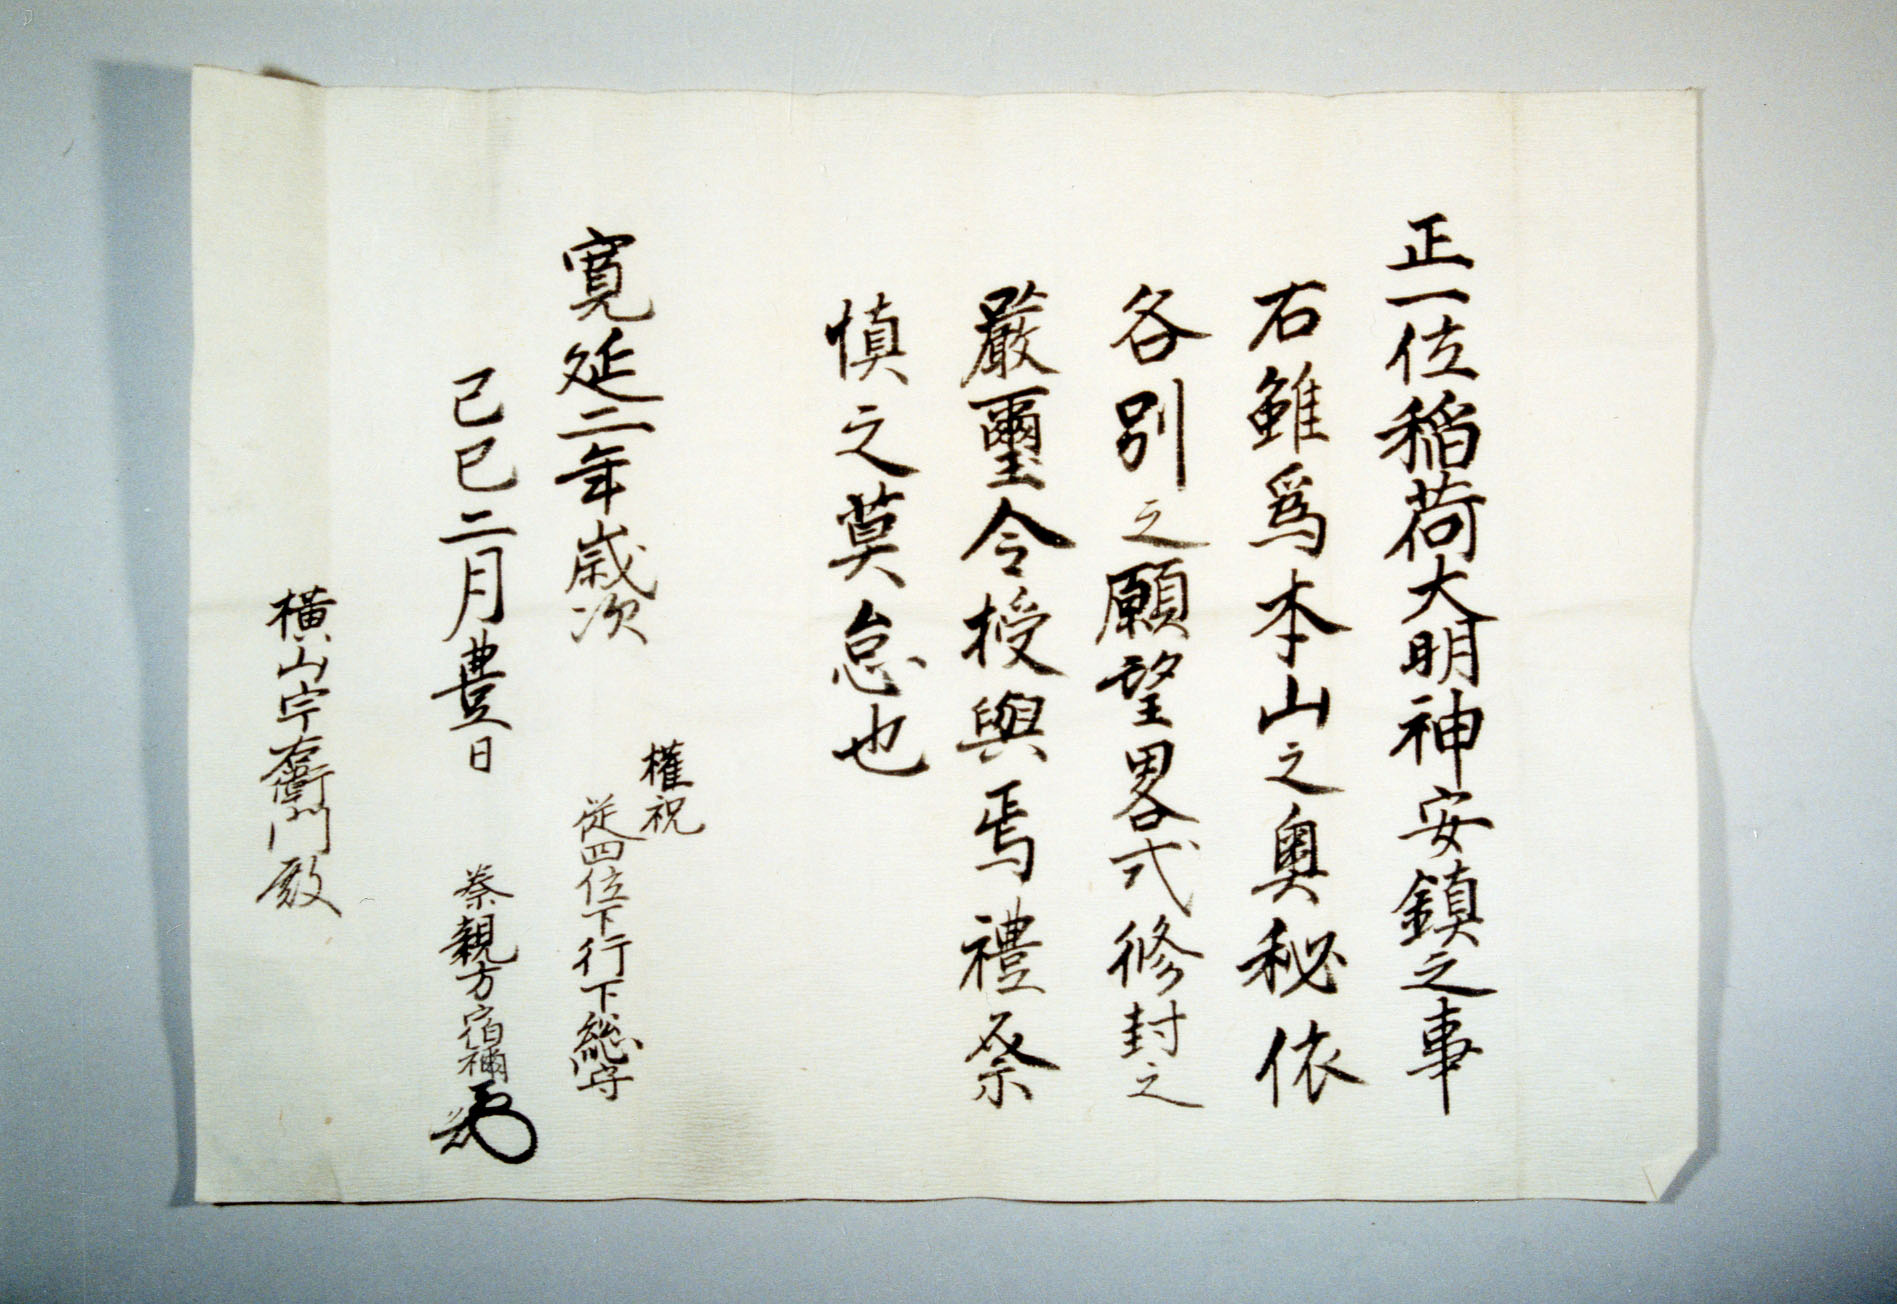 正一位稲荷大明神安鎮之事
右雖爲本山之奥秘依
各別之願望畧式修封之
嚴璽令授與焉禮祭
慎之莫怠也
寛延二年歳次
己巳二月豊日
權祝
従四位下行下総守
秦親方宿禰
横山宇右衛門殿